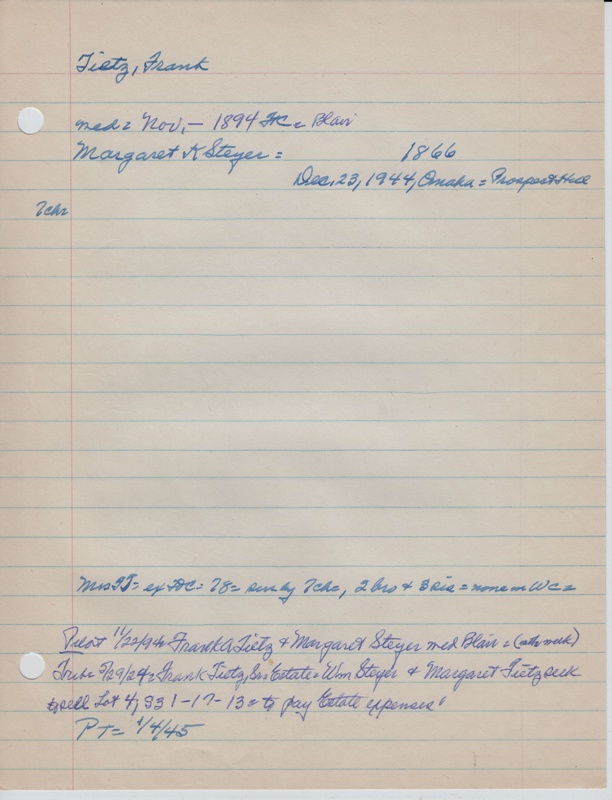 Tietz, Frank
med = Nov, – 1894 = Blair
Margaret K Steyer = 1866
Dec, 23, 1944, Omaha = Prospect Hill
7ch=
Mrs FT = ex = 78 = sur by 7ch =, 2 bro & 3 sis = none in WC =
Pilot 11/22/94 = Frank A Tietz & Margaret Steyer med Blair = (this week)
Trib = 7/29/24 = Frank Tietz, Sr = Estate = Wm Steyer & Margaret Tietz seek
to sell Lot 4, S31-17-13 = to pay Estate expenses"
PT = 1/4/45